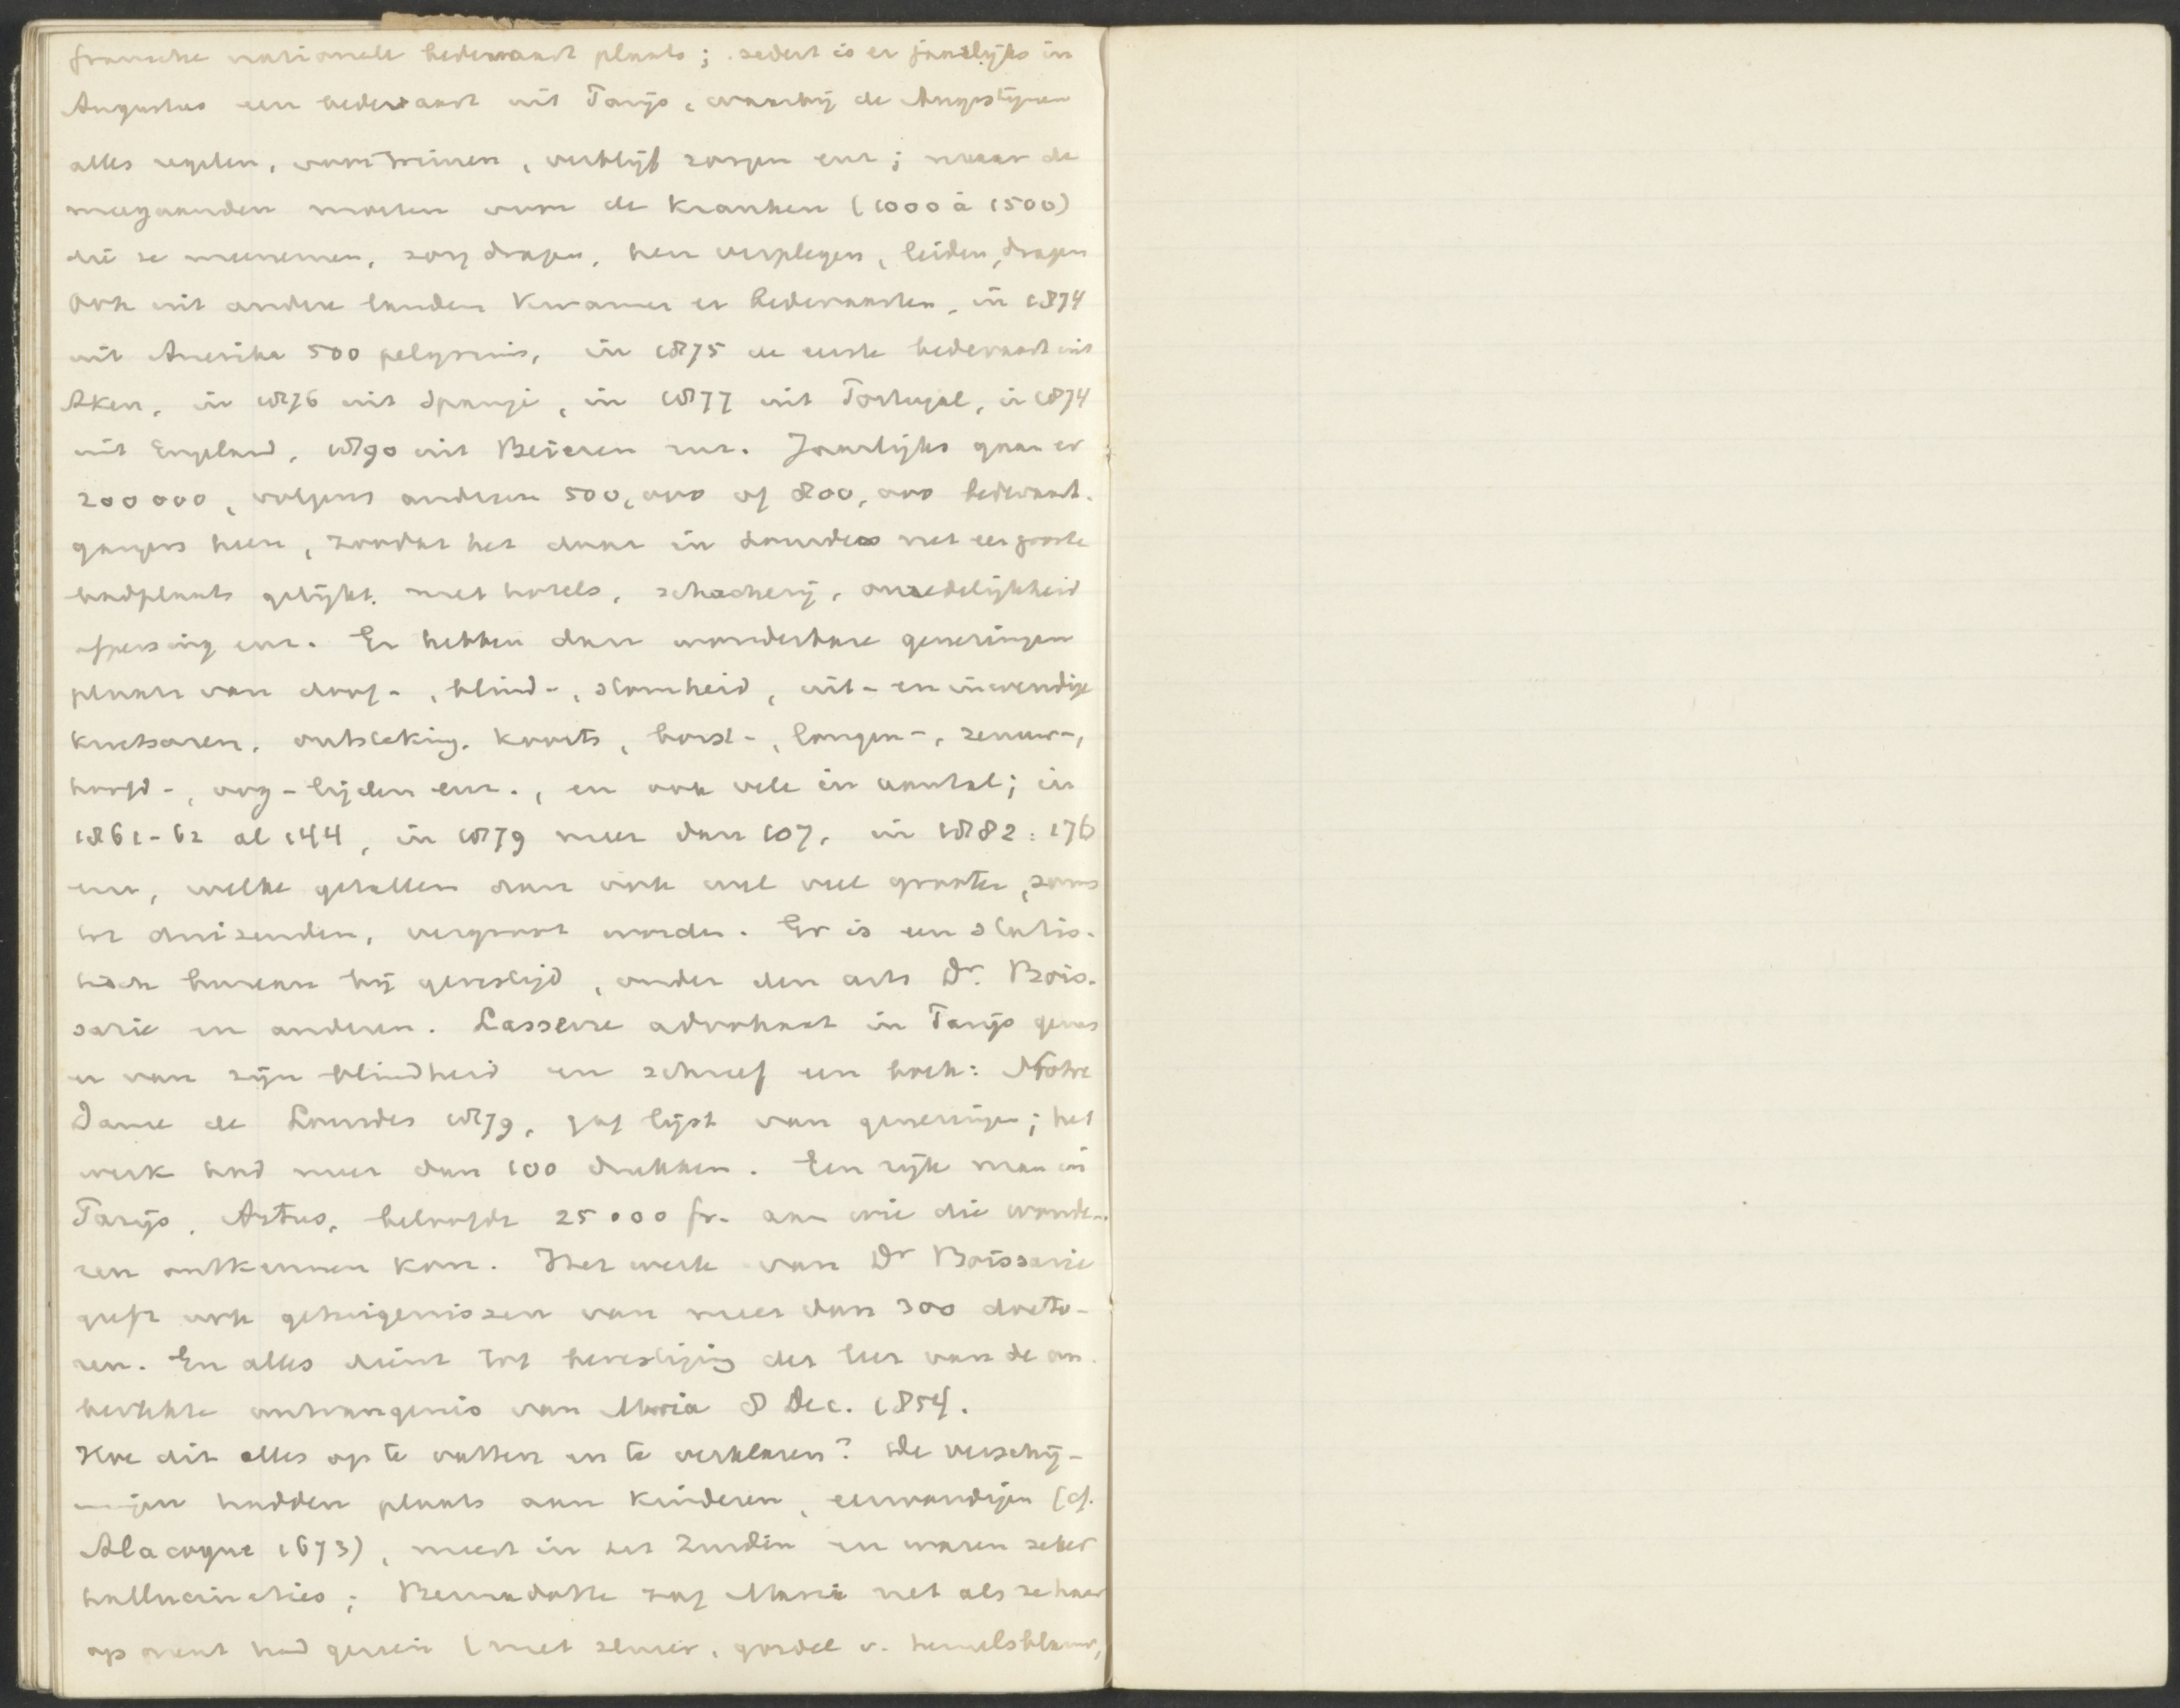 fransche nationale bedevaart plaats; sedert is er jaarlijks in
Augustus een bedevaart uit Parijs, waarbij de Augustijnen
alles regelen, voor treinen, verblijf zorgen enz; maar de
meegaanden moeten voor de kranken (1000 à 1500)
die ze meenemen, zorg dragen, hen verplegen, leiden, dragen
Ook uit andere landen kwamen er bedevaarten, in 1874
uit Amerika 500 pelgrims, in 1875 de eerste bedevaart uit
Aken, in 1876 uit Spanje, in 1877 uit Portugal, in 1874
uit Engeland, 1890 uit Beieren enz. Jaarlijks gaan er
200000, volgens anderen 500,000 of 800,000 bedevaart-
gangers heen, zoodat het daar in Lourdes net een groote
badplaats gelijkt. met hotels, schacherij, onzedelijkheid
afpersing enz. Er hebben dan wonderbare genezingen
plaats van doof-, blind-, stomheid, uit- en inwendige
kwetsuren, ontsteking, koorts, borst-, longen-, zenuw-,
hoofd-, oog-lijden enz., en ook vele in aantal; in
1861-62 al 144, in 1879 meer dan 107, in 1882: 176
enz, welke getallen dan ook wel veel grooter, soms
tot duizenden, vergroot worden. Er is een statis-
tisch bureau bij gevestigd, onder den arts Dr. Bois-
sarie en anderen. Lasserre advokaat in Parijs genas
er van zijn blindheid en schreef een boek: Notre
Dame de Lourdes 1879, gaf lijst van genezingen; het
werk had meer dan 100 drukken. Een rijk man in
Parijs, Artus, beloofde 25000 fr. aan wie die wonde-
ren ontkennen kon. Het werk van Dr Boissarie
geeft ook getuigenissen van meer dan 300 docto-
ren. En alles dient tot bevestiging der leer van de on-
bevlekte ontvangenis van Maria 8 Dec. 1854.
Hoe dit alles op te vatten en te verklaren? De verschij-
ningen hadden plaats aan kinderen, eenvoudigen (cf.
Alacoque 1673), meest in het Zuiden en waren zeker
hallucinaties; Bernadette zag Maria net als ze haar
op prent had gezien (met sluier, gordel v. hemelsblauw,